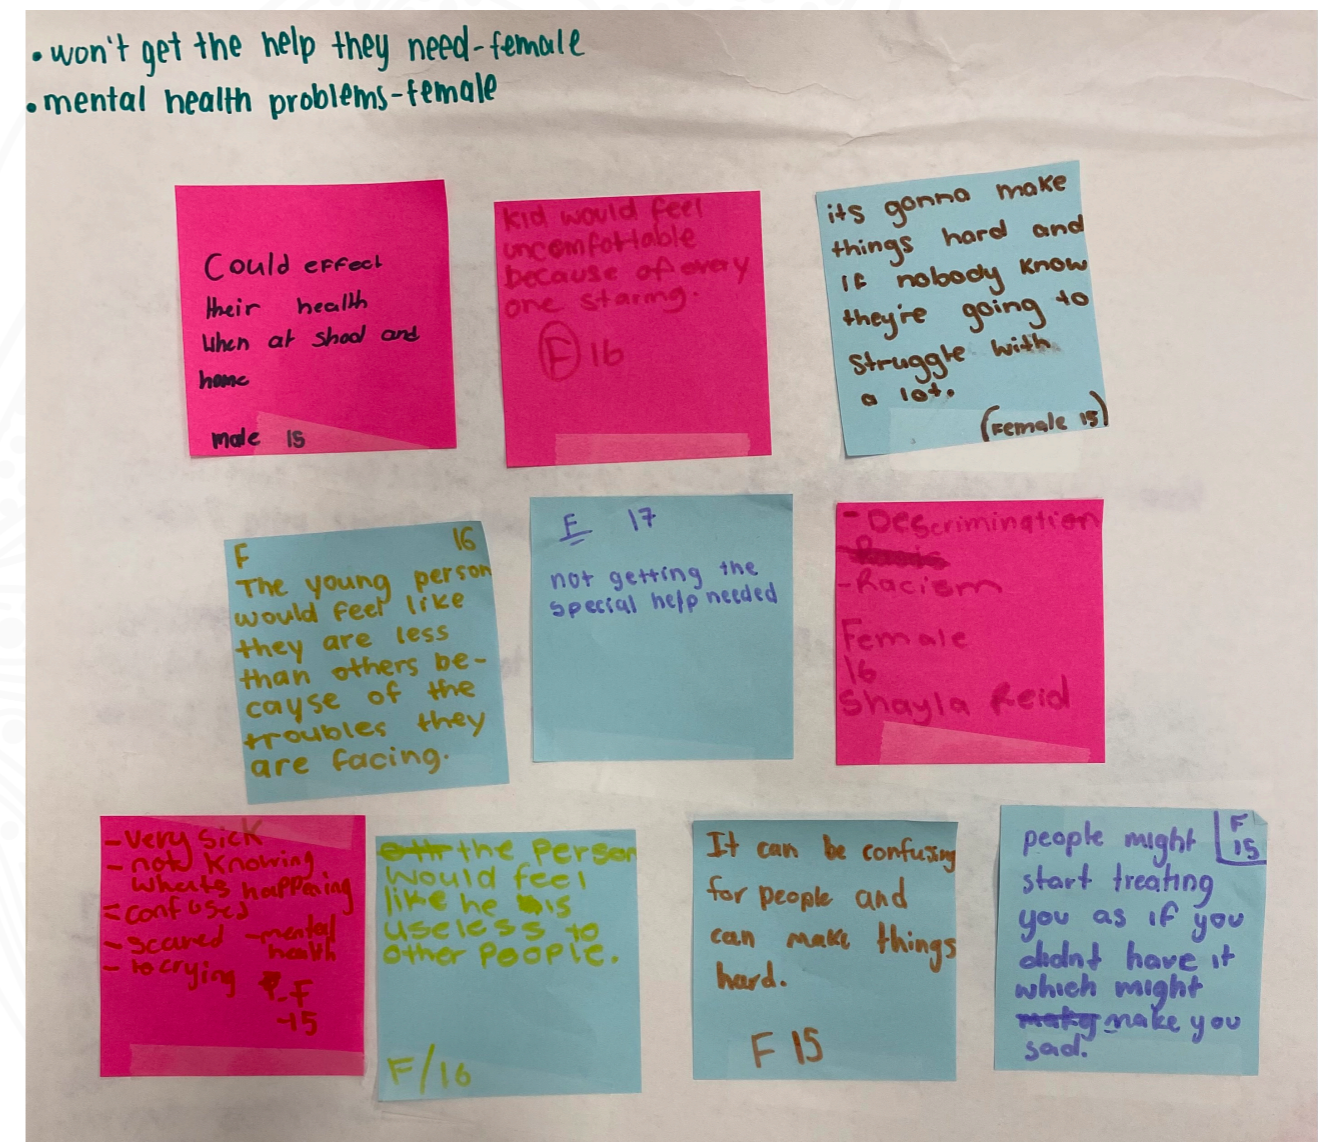 • won't get the help they need-female
• mental health problems-female
Could effect
their health
when at shool and
home
male 15
kid would feel
uncomfortable
because of every
one staring.
F 16
its gonna make
things hard and
if nobody know
they're going to
struggle with
a lot.
(Female 15)
F 16
The young person
would feel like
they are less
than others be-
cayse of the
troubles they
are facing.
F 17
not getting the
special help needed
- Descrimination
- Racism
Female
16
Shayla Reid
- very sick
- not knowing
whats happening
= confuses
- scared - mental
health
- crying
- F
-15
the person
would feel
like he is
useless to
other people.
F/16
It can be confusing
for people and
can make things
hard.
F 15
people might F
15
start treating
you as if you
didnt have it
which might
make you
sad.